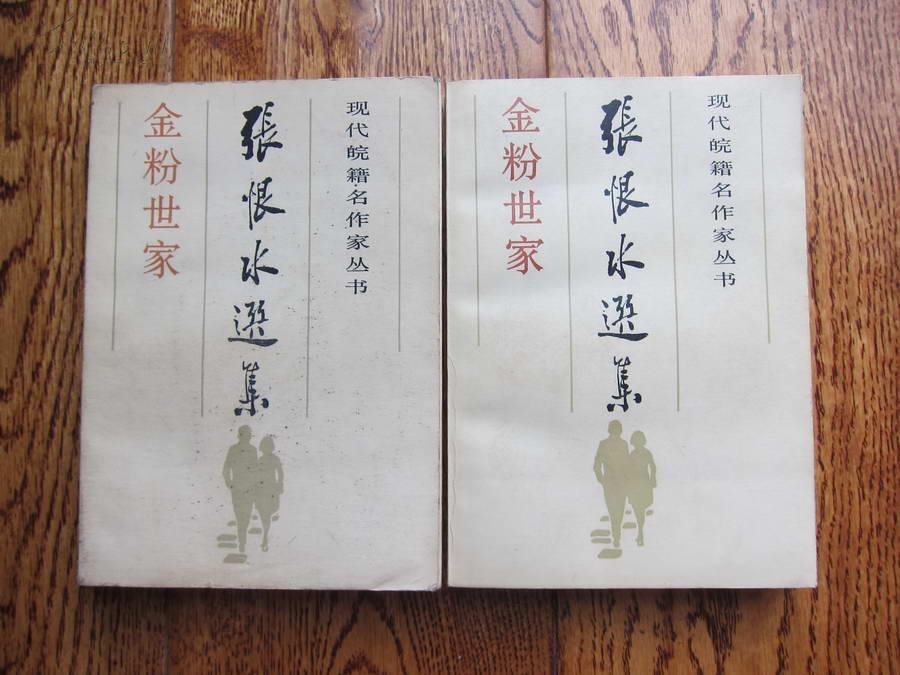 现代皖籍名作家丛书
張恨水選集
金粉世家
现代皖籍名作家丛书
張恨水選集
金粉世家